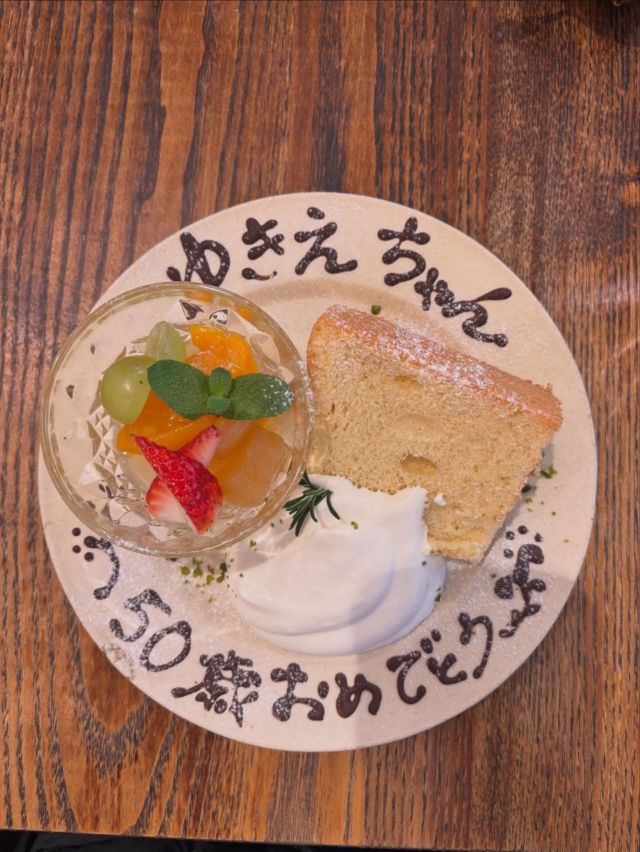 ゆきえ ちゃん
50歳おめでとう